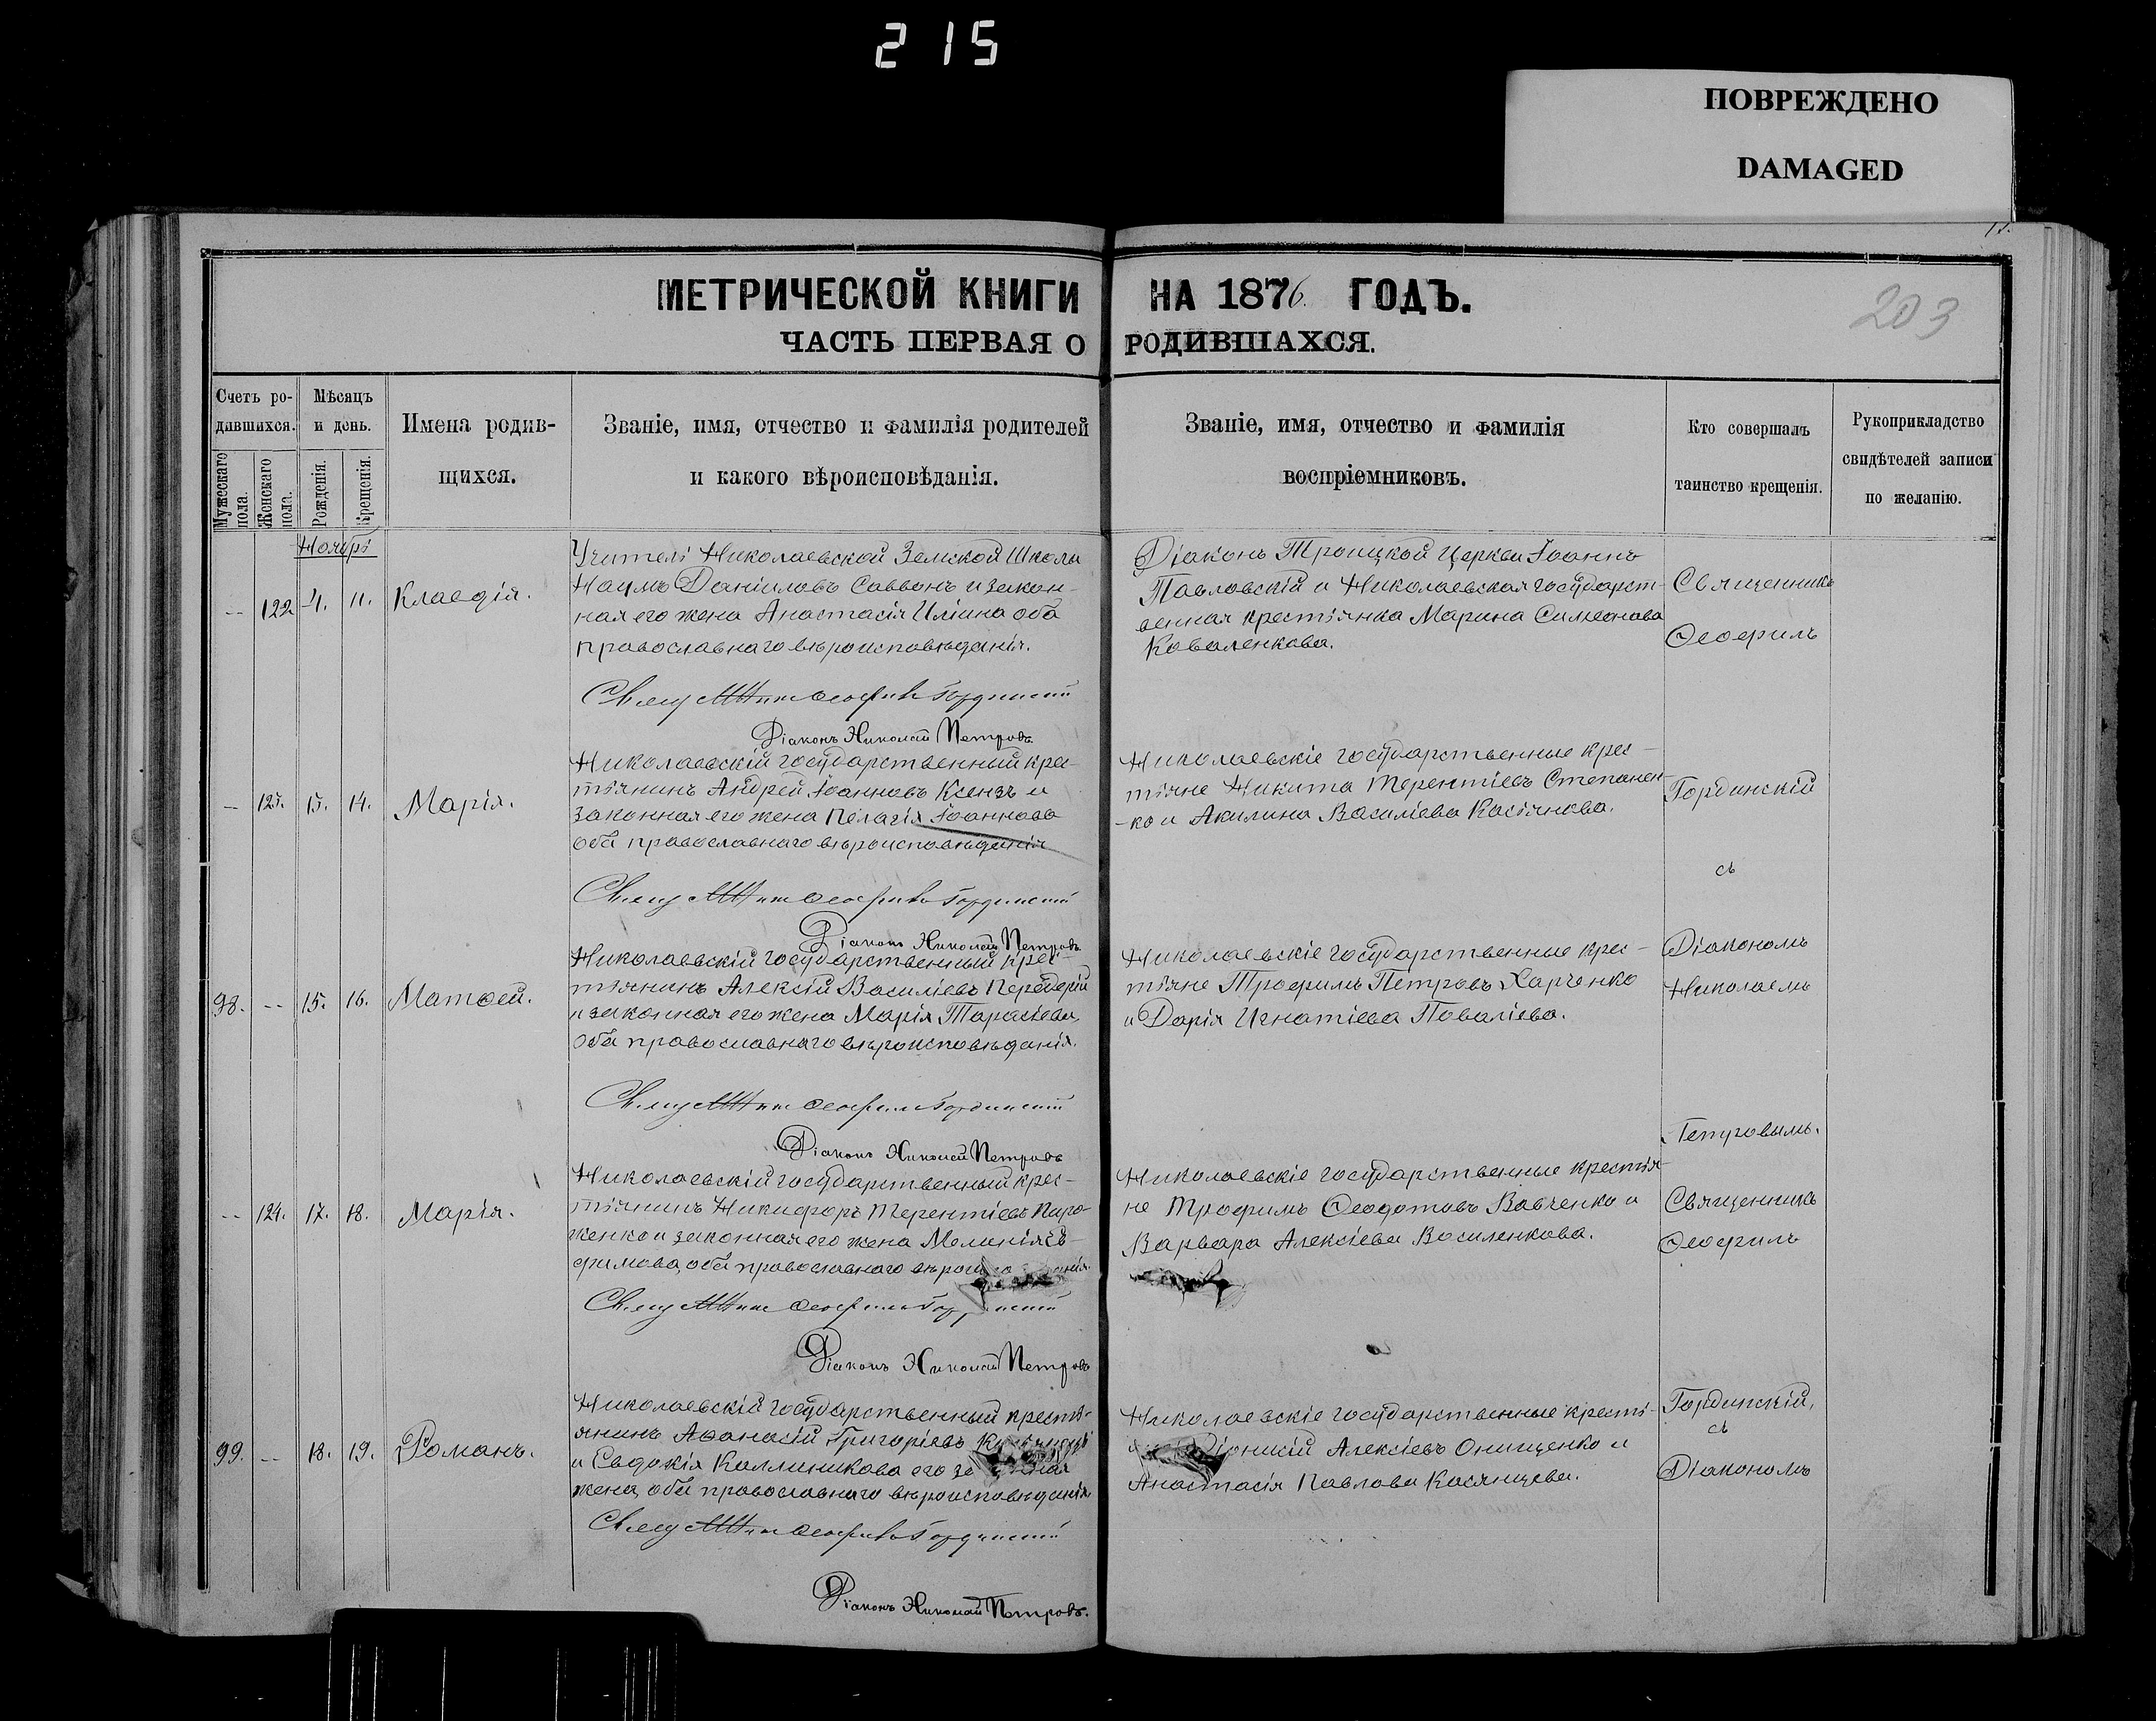 215
ПОВРЕЖДЕНО
DAMAGED
203
МЕТРИЧЕСКОЙ КНИГИ НА 1876. ГОДЪ.
ЧАСТЬ ПЕРВАЯ О РОДИВШАХСЯ.
Счетъ ро-
дившихся.
Мужескаго пола.
Женскаго пола.
Мѣсяцъ
и день.
Рожденія.
Крещенія.
Имена родив-
щихся.
Званіе, имя, отчество и фамилія родителей
и какого вѣроисповѣданія.
Званіе, имя, отчество и фамилія
воспріемниковъ.
Кто совершалъ
таинство крещенія.
Рукоприкладство
свидѣтелей записи
по желанію.
Ноября
-- 122 4. 11. Клавдія.
Учитель Николаевской Земской Школы
Наумъ Даніиловъ Саввонъ и закон-
ная его жена Анастасія Иліина оба
православнаго вѣроисповѣданія.
Діаконъ Николай Петровъ
Діаконъ Троицкой Церкви Іоаннъ
Павловскій и Николаевская государст-
венная крестьянка Марина Симеонова
Коваленкова.
Священникъ
Ѳеофилъ
-- 123. 13. 14. Марія.
Николаевскій государственный крес-
тьянинъ Андрей Іоанновъ Ксензъ и
законная его жена Пелагія Іоаннова
оба православнаго вѣроисповѣданія
Діаконъ Николай Петровъ
Николаевскіе государственные крес-
тьяне Никита Терентіевъ Степанен-
-ко и Акилина Василіева Касьянова.
Гординскій
съ
98. -- 15. 16. Матѳей.
Николаевскій государственный крес-
тьянинъ Алексій Василіевъ Передерій
и законная его жена Марія Тарасіева,
оба православнаго вѣроисповѣданія.
Діаконъ Николай Петровъ
Николаевскіе государственные крес-
тьяне Трофимъ Петровъ Харченко
и Дарія Игнатіева Повалієва.
Діакономъ
Николаемъ
Петровымъ.
-- 124. 17. 18. Марія.
Николаевскій государственный крес-
тьянинъ Никифоръ Терентіевъ Пиро-
женко и законная его жена Меланія Ев-
фимова, оба православнаго
Діаконъ Николай Петровъ
Николаевскіе государственные крестья-
не Трофимъ Ѳеодотовъ Вовченко и
Варвара Алексіева Василенкова.
Священникъ
Ѳеофилъ
99. -- 18. 19. Романъ.
Николаевскій государственный кресть-
янинъ Аѳанасій Григоріевъ
и Евдокія Каллиникова его
жена, оба православнаго вѣроисповѣданія
Діаконъ Николай Петровъ.
Николаевскіе государственные кресть-
Діонисій Алексіевъ Онищенко и
Анастасія Павлова Касянцева.
Гординскій,
съ
Діакономъ